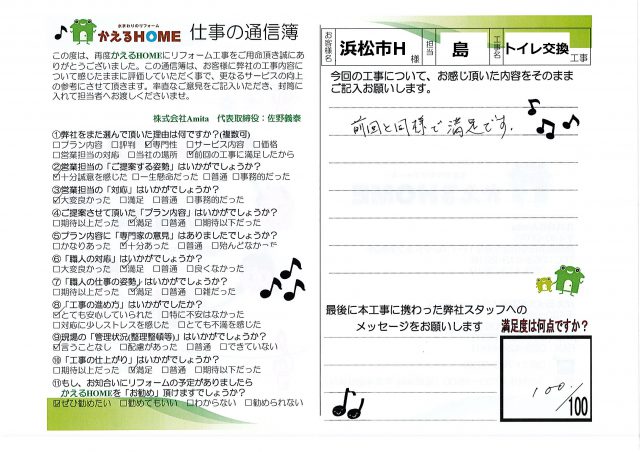 水まわりのリフォーム
かえるHOME 仕事の通信簿
この度は、再度かえるHOMEにリフォーム工事をご用命頂き誠にあ
りがとうございました。この通信簿は、お客様に弊社の工事内容
について感じたままに評価していただく事で、更なるサービスの向上
の参考にさせて頂きます。率直なご意見をご記入いただき、封筒に
入れて担当者へお渡しくださいませ。
株式会社Amita 代表取締役：佐野義泰
①弊社をまた選んで頂いた理由は何ですか?(複数可)
□プラン内容 □評判 ☑専門性 □サービス内容 □価格
□営業担当の対応 □当社の場所 ☑前回の工事に満足したから
②営業担当の「ご提案する姿勢」はいかがでしょうか?
☑十分誠意を感じた □一生懸命だった □普通 □事務的だった
③営業担当の「対応」はいかがでしょうか?
☑大変良かった □満足 □普通 □事務的だった
④ご提案させて頂いた「プラン内容」はいかがでしょうか?
□期待以上だった ☑満足 □普通 □期待以下だった
⑤プラン内容に「専門家の意見」はありましたでしょうか?
□かなりあった ☑十分あった □普通 □殆んどなかった
⑥「職人の対応」はいかがでしょうか?
□大変良かった ☑満足 □普通 □良くなかった
⑦「職人の仕事の姿勢」はいかがでしょうか?
□期待以上だった ☑満足 □普通 □雑だった
⑧「工事の進め方」はいかがでしたか?
☑とても安心していられた □特に不安はなかった
□対応に少しストレスを感じた □とても不満を感じた
⑨現場の「管理状況(整理整頓等)」はいかがでしょうか?
☑言うことなし □配慮があった □普通 □できていない
⑩「工事の仕上がり」はいかがでしょうか?
□期待以上だった ☑満足 □普通 □期待以下だった
⑪もし、お知合いにリフォームの予定がありましたら
かえるHOMEを「お勧め」頂けますでしょうか?
☑ぜひ勧めたい □勧めてもいい □わからない □勧められない
お客様名 浜松市H 様 担当 島 工事名 トイレ交換 工事
今回の工事について、お感じ頂いた内容をそのまま
ご記入お願いします。
前回と同様で満足です。
最後に本工事に携わった弊社スタッフへの
メッセージをお願いします
満足度は何点ですか?
100/100